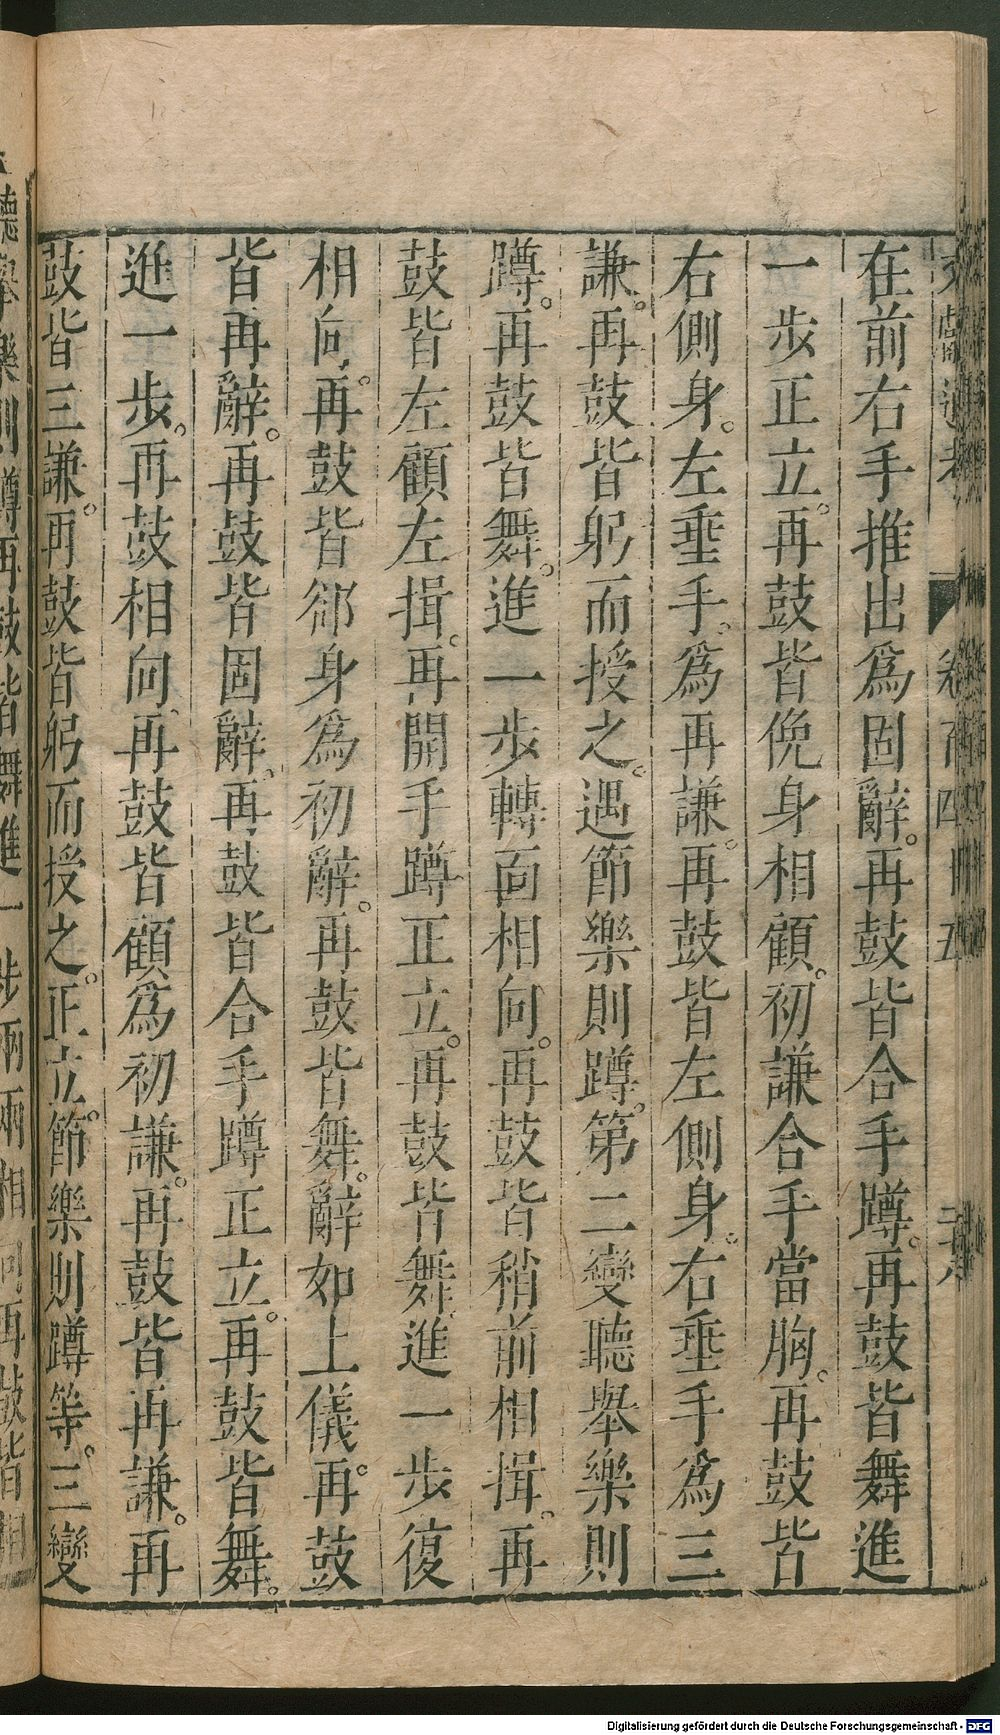 在前右手推出為固辭。再鼓皆合手蹲。再鼓皆舞進
一步正立。再鼓皆俛身相顧。初謙合手當胸。再鼓皆
右側身。左垂手。為再謙。再鼓皆左側身。右垂手為三
謙。再鼓皆躬而授之。遇節樂則蹲。第二變聽舉樂則
蹲。再鼓皆舞。進一步轉面相向。再鼓皆稍前相揖。再
鼓皆左顧左揖。再開手蹲正立。再鼓皆舞。進一步復
相向。再鼓皆卻身為初辭。再鼓皆舞。辭如上儀。再鼓
皆再辭。再鼓皆固辭。再鼓皆合手蹲正立。再鼓皆舞。
進一步。再鼓相向。再鼓皆顧為初謙。再鼓皆再謙。再
鼓皆三謙。再鼓皆躬而授之。正立。節樂則蹲等。三變
卷百四十五
Digitalisierung gefördert durch die Deutsche Forschungsgemeinschaft - DFG